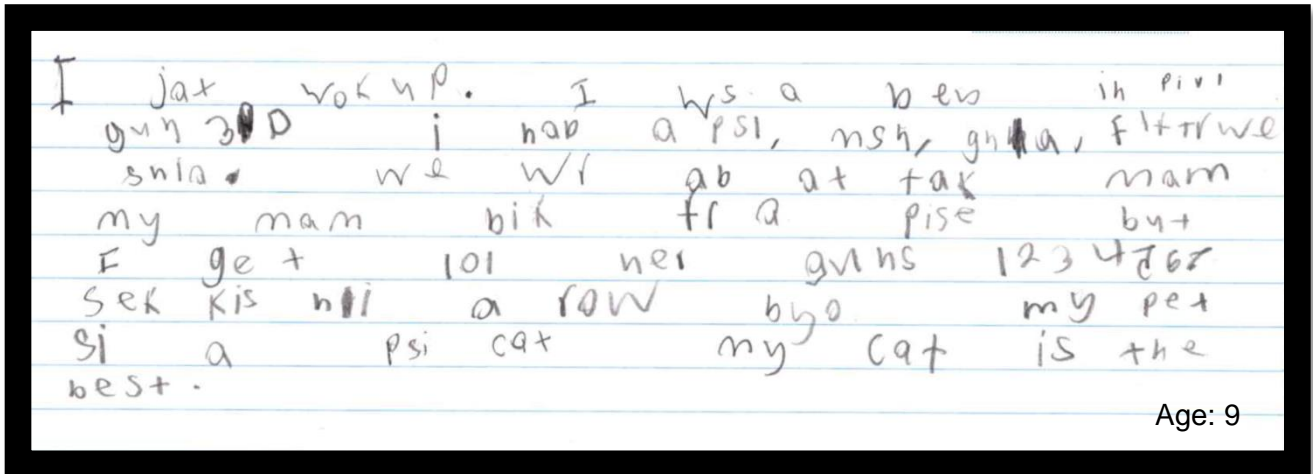 I jax wok up. I ws a ben in pivi
gun 3 D i hab a psi, nsn, gnna, Fltrrwe
snla. we wr ab at tak mam
my mam bik fr a pise but
I get 101 ner guns 1234567
sek kis nii a row byo my pet
si a psi cat my cat is the
best.
Age: 9